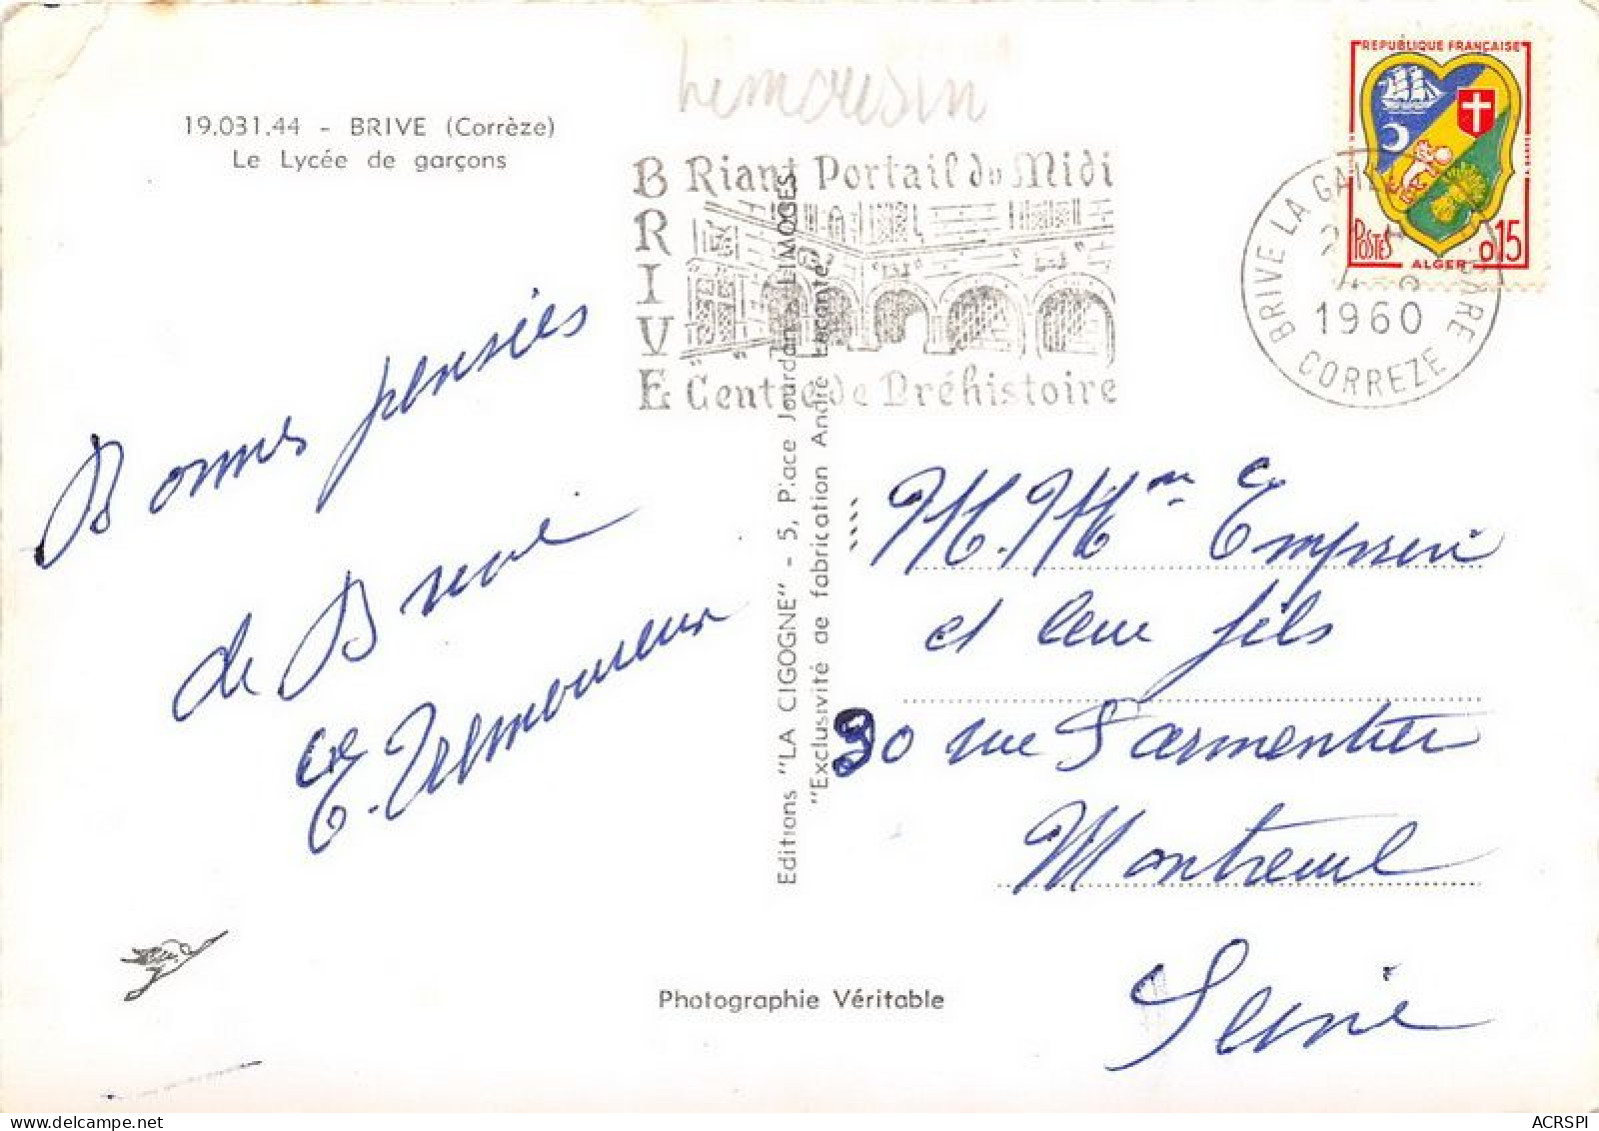 Limousin
19.031.44 - BRIVE (Corrèze)
Le Lycée de garçons
BRIVE
Riant Portail du Midi
Centre de Préhistoire
REPUBLIQUE FRANÇAISE
POSTES
ALGER
0,15
BRIVE LA GAILLARDE
1960
CORREZE
Bonnes pensées
de Brive
Editions "LA CIGOGNE" - 5, Place Jourdan - LIMOGES
"Exclusivité de fabrication André Leconte"
M. Mme
et leur fils
30 rue Parmentier
Montreuil
Seine
Photographie Véritable
ACRSPI